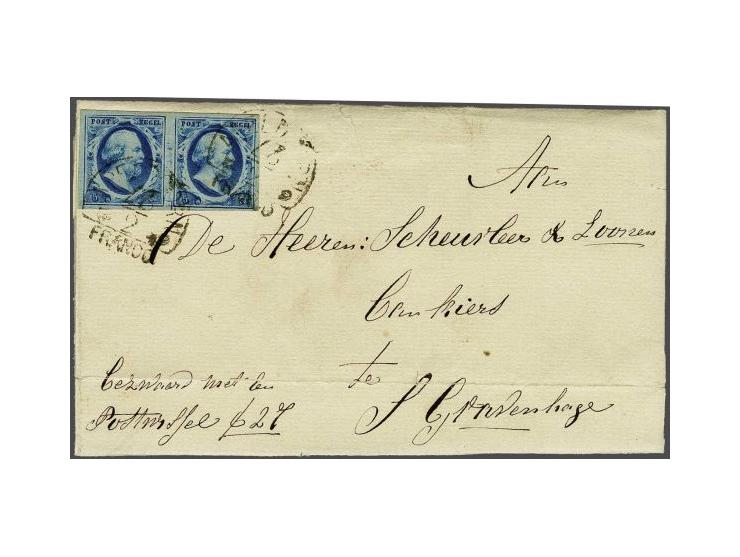 POST ZEGEL POST ZEGEL
5 C 5 C
FRANCO
Aan
De Heeren: Scheurleer & Loonen
Bankiers
te
S Gravenhage
bezwaard met een
Postwissel f 27